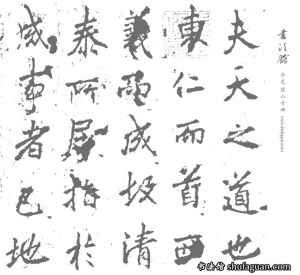 夫天之道也
東仁而首西
義而成故清
泰所居指於
成事者已地
書法館
李邕 麓山寺碑 www.shufaguan.com
书法馆 shufaguan.com